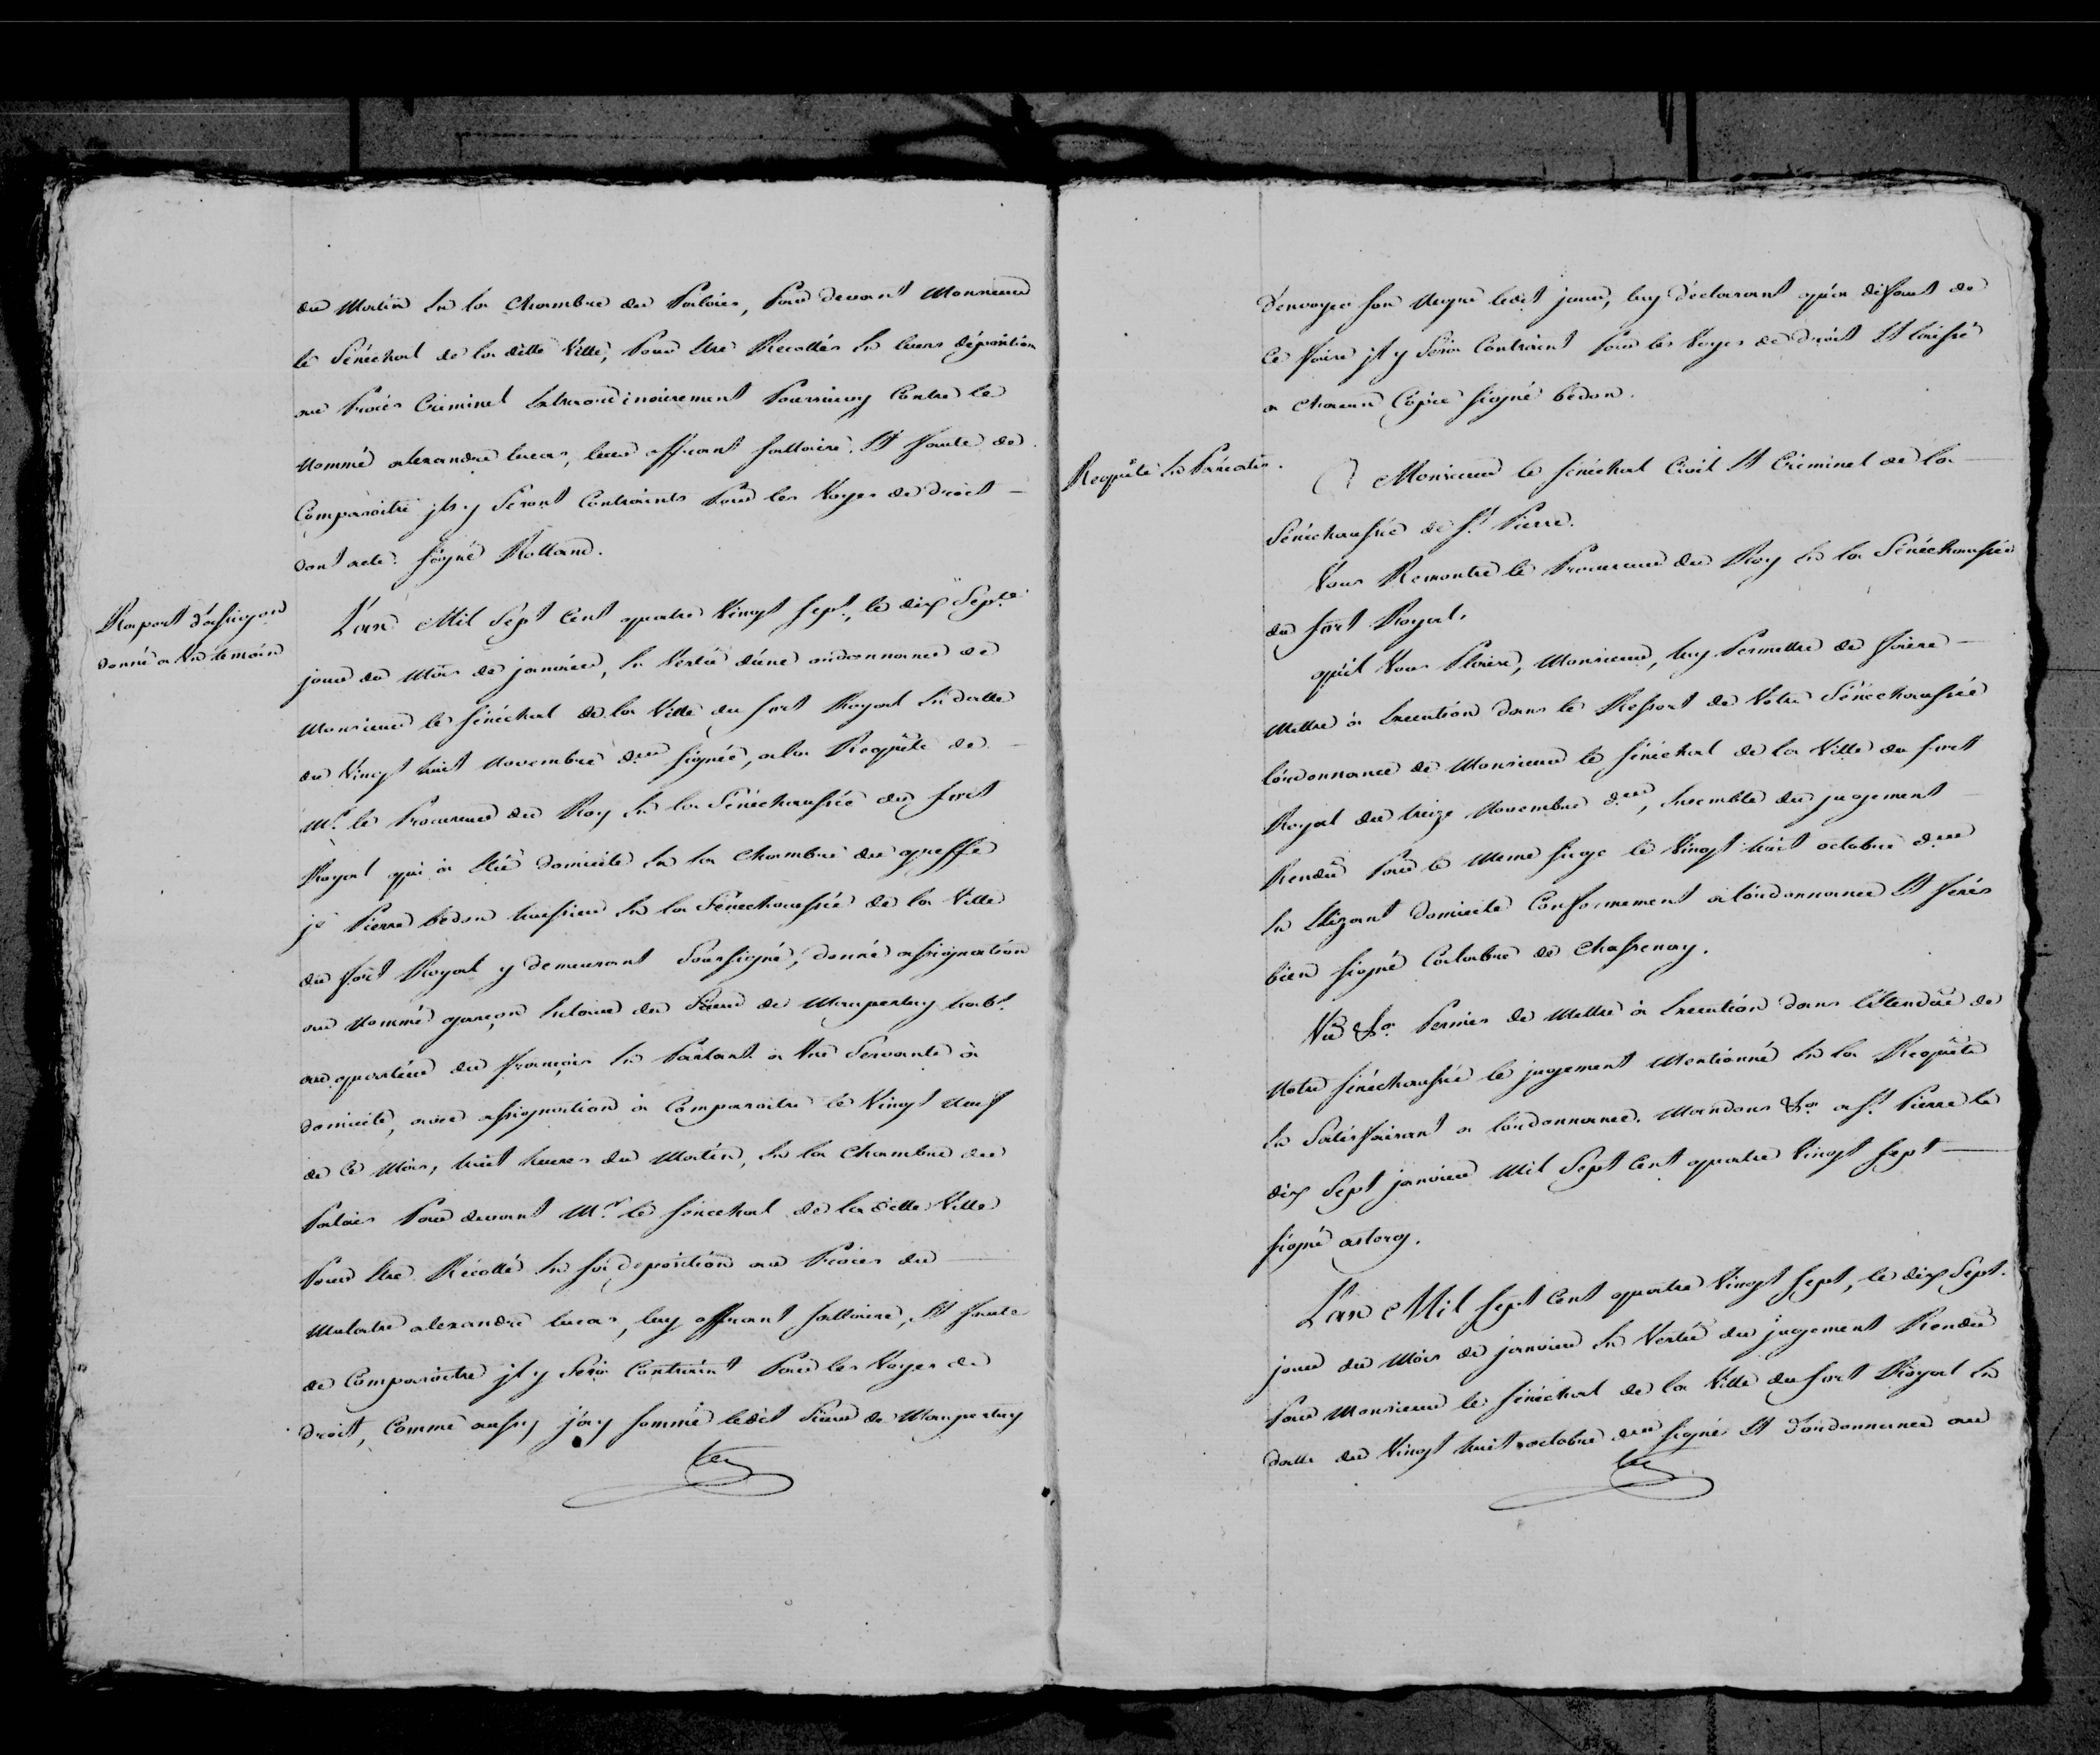 du Matin En la Chambre du Palais, Pardevant Monsieur
le Sénéchal de la ditte Ville, Pour Etre Recollés En leurs déposition
au Procès Criminel Extraordinairement Poursuivy Contre le
Nommé alexandre lucas, leur offrant sallaire. Et faute de
Comparoitre jls y Seront Contraints Par les Voyes de droit —
dont acte. signé Rolland.
Raport d'assigon
donné a Un temoin
L'an Mil Sept Cent quatre Vingt sept, le dix Sept.e
jour du Mois de janvier, En Vertu d'une ordonnance de
Monsieur le sénéchal de la Ville du fort Royal En datte
du Vingt huit Novembre der signée, a la Requête de
Mr. le Procureur du Roy En la Sénéchaussée du fort
Royal qui a Elu domicile En la Chambre du greffe
je Pierre bedon huissier En la Sénéchaussée de la Ville
du fort Royal y demeurant Soussigné, donné assignation
au Nommé garçon Esclave du Sieur de Maupertuy habt.
au quartier du françois En Parlant a Une Servante à
domicile, avec assignation à Comparoitre le Vingt Neuf
de Ce Mois, huit heures du Matin, En la Chambre du
Palais Par devant Mr. le sénéchal de la ditte Ville
Pour Etre Récollé En sa deposition au Procès du —
Mulatre alexandre lucas, luy offrant sallaire, Et faute
de Comparoitre jl y Sera Contraint Par les Voyes de
droit, Comme aussy j'ay sommé ledit Sieur de Maupertuy
d'envoyer son Negre ledit jour, luy déclarant qu'a défaut de
Ce faire jl y Sera Contraint Par les Voyes de droit Et laissé
a Chacun Copie signé bedon.
Requête En Paréatis.
A Monsieur le sénéchal Civil Et Criminel de la —
Sénéchaussée de St. Pierre.
Vous Remontre le Procureur du Roy En la Sénéchaussée
du fort Royal.
qu'il Vous Plaise, Monsieur, luy Permettre de faire —
Mettre à Execution dans le Ressort de Votre Sénéchaussée
l'ordonnance de Monsieur le sénéchal de la Ville du fort
Royal du treize Novembre der, Ensemble du jugement —
Rendu Par le Meme siege le Vingt huit octobre der
En Elizant domicile Conformement a l'ordonnance Et ferés
bien signé Calabre de Chassenay.
Vû &a. Permis de Mettre à Execution dans l'Etendue de
Notre sénéchaussée le jugement Mentionné En la Requête
En Satisfaisant a l'ordonnance. Mandons &a. a St. Pierre le
dix Sept janvier Mil Sept Cent quatre Vingt sept —
signé astorg.
L'an Mil sept Cent quatre Vingt sept, le dix Sept.
jour du Mois de janvier En Vertu du jugement Rendu
Par Monsieur le sénéchal de la Ville du fort Royal En
datte du Vingt huit octobre der signé Et d'ordonnance au